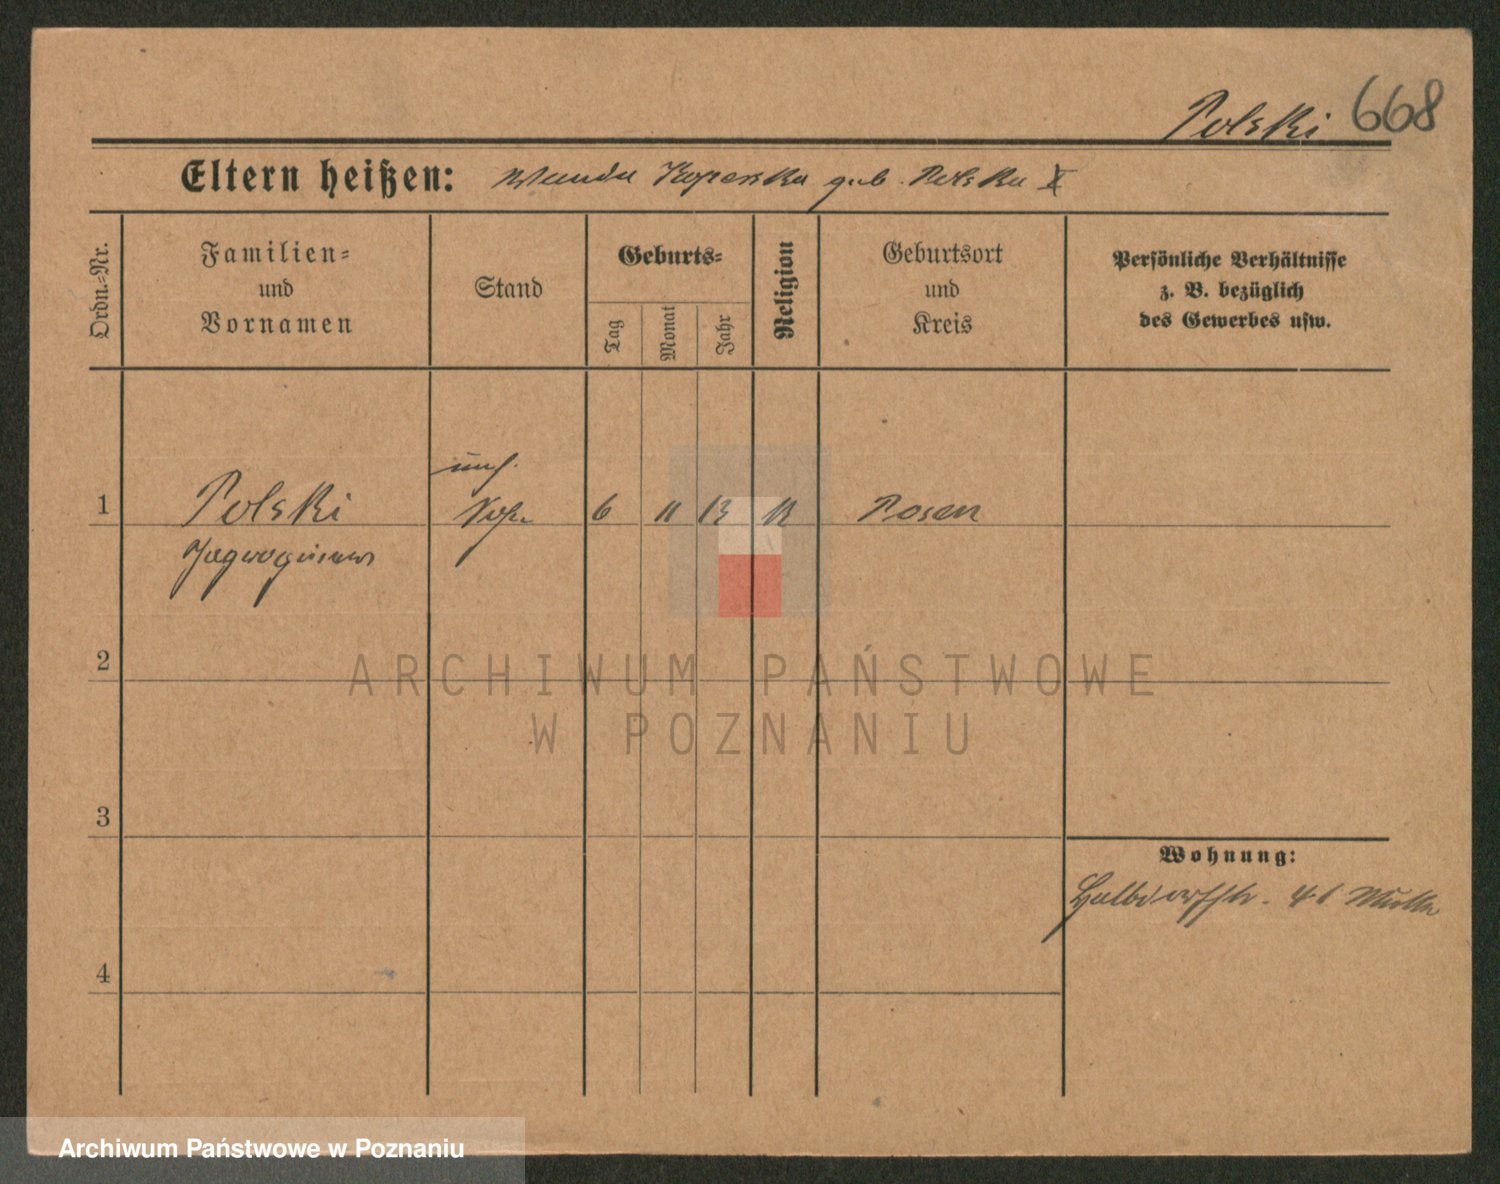 Polski 668
Eltern heißen: Wanda Koperska geb. Polska X
Ordn.=Nr.
Familien=
und
Vornamen
Stand
Geburts=
Tag
Monat
Jahr
Religion
Geburtsort
und
Kreis
Persönliche Verhältnisse
z. B. bezüglich
des Gewerbes usw.
1 Polski 6 11 13 K Posen
2
3
4
Wohnung:
Halbdorfstr. 41 Mutter
ARCHIWUM PAŃSTWOWE
W POZNANIU
Archiwum Państwowe w Poznaniu